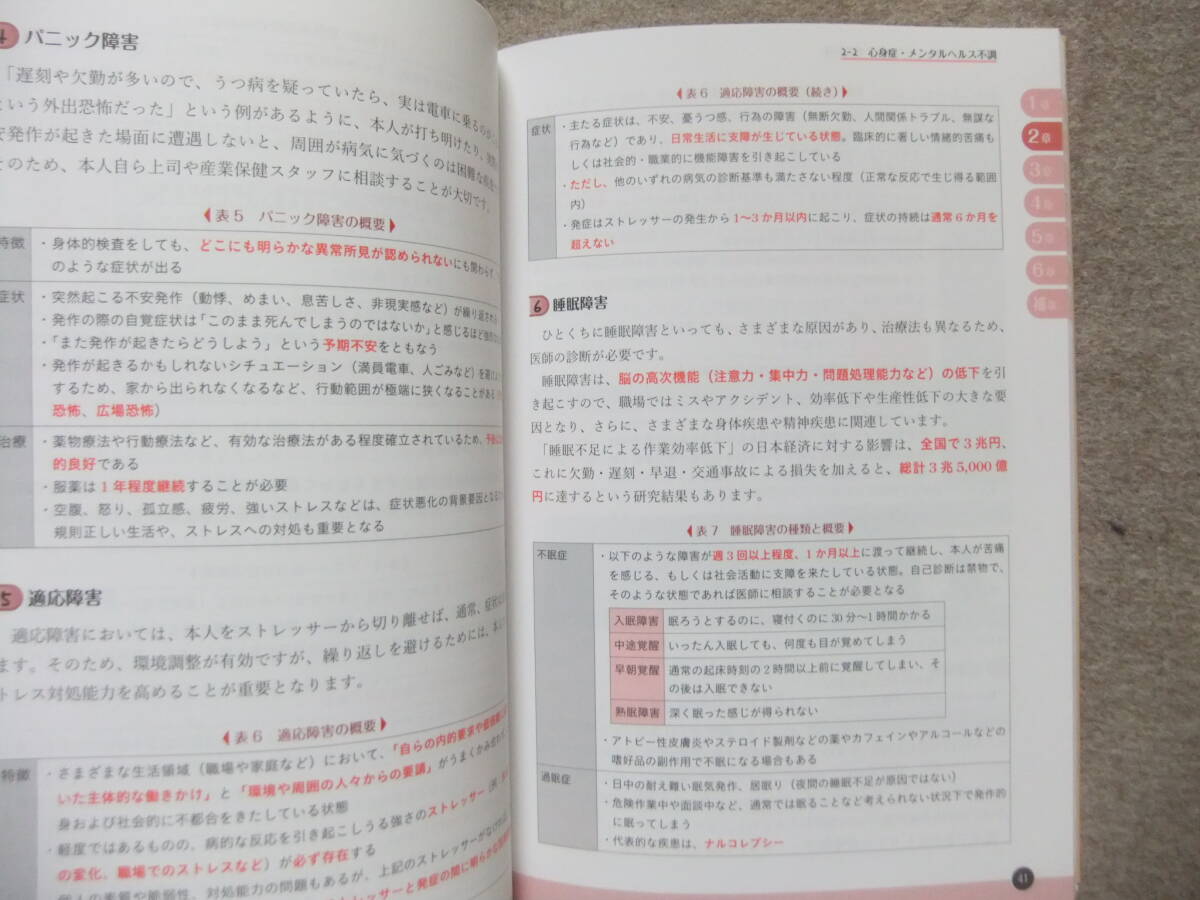 4 パニック障害
「遅刻や欠勤が多いので、うつ病を疑っていたら、実は電車に乗るのが
という外出恐怖だった」という例があるように、本人が打ち明けたり、
安発作が起きた場面に遭遇しないと、周囲が病気に気づくのは困難な
そのため、本人自ら上司や産業保健スタッフに相談することが大切です。
表5 パニック障害の概要
特徴
・身体的検査をしても、どこにも明らかな異常所見が認められないにも関わらず、
のような症状が出る
症状
・突然起こる不安発作（動悸、めまい、息苦しさ、非現実感など）が繰り返さ
・発作の際の自覚症状は「このまま死んでしまうのではないか」と感じるほど強
・「また発作が起きたらどうしよう」という予期不安をともなう
・発作が起きるかもしれないシチュエーション（満員電車、人ごみなど）を避け
するため、家から出られなくなるなど、行動範囲が極端に狭くなることがある
恐怖、広場恐怖）
治療
・薬物療法や行動療法など、有効な治療法がある程度確立されているため、予後は
的良好である
・服薬は1年程度継続することが必要
・空腹、怒り、孤立感、疲労、強いストレスなどは、症状悪化の背景要因となる
規則正しい生活や、ストレスへの対処も重要となる
5 適応障害
適応障害においては、本人をストレッサーから切り離せば、通常、症状は
ます。そのため、環境調整が有効ですが、繰り返しを避けるためには、本人
トレス対処能力を高めることが重要となります。
表6 適応障害の概要
特徴
・さまざまな生活領域（職場や家庭など）において、「自らの内的要求や価値観
いた主体的な働きかけ」と「環境や周囲の人々からの要請」がうまくかみ合わず
身および社会的に不都合をきたしている状態
・軽度ではあるものの、病的な反応を引き起こしうる強さのストレッサー
の変化、職場でのストレスなど）が必ず存在する
個人の素質や脆弱性、対処能力の問題もあるが、上記のストレッサーがなければ
ストレッサーと発症の間に明らかな
2-2 心身症・メンタルヘルス不調
表6 適応障害の概要（続き）
症状
・主たる症状は、不安、憂うつ感、行為の障害（無断欠勤、人間関係トラブル、無謀な
行為など）であり、日常生活に支障が生じている状態。臨床的に著しい情緒的苦痛も
しくは社会的・職業的に機能障害を引き起こしている
・ただし、他のいずれの病気の診断基準も満たさない程度（正常な反応で生じ得る範囲
内）
・発症はストレッサーの発生から1〜3か月以内に起こり、症状の持続は通常6か月を
超えない
6 睡眠障害
ひとくちに睡眠障害といっても、さまざまな原因があり、治療法も異なるため、
医師の診断が必要です。
睡眠障害は、脳の高次機能（注意力・集中力・問題処理能力など）の低下を引
き起こすので、職場ではミスやアクシデント、効率低下や生産性低下の大きな要
因となり、さらに、さまざまな身体疾患や精神疾患に関連しています。
「睡眠不足による作業効率低下」の日本経済に対する影響は、全国で3兆円、
これに欠勤・遅刻・早退・交通事故による損失を加えると、総計3兆5,000億
円に達するという研究結果もあります。
表7 睡眠障害の種類と概要
不眠症
・以下のような障害が週3回以上程度、1か月以上に渡って継続し、本人が苦痛
を感じる、もしくは社会活動に支障を来たしている状態。自己診断は禁物で、
そのような状態であれば医師に相談することが必要となる
入眠障害 眠ろうとするのに、寝付くのに30分〜1時間かかる
中途覚醒 いったん入眠しても、何度も目が覚めてしまう
早朝覚醒 通常の起床時刻の2時間以上前に覚醒してしまい、そ
の後は入眠できない
熟眠障害 深く眠った感じが得られない
・アトピー性皮膚炎やステロイド製剤などの薬やカフェインやアルコールなどの
嗜好品の副作用で不眠になる場合もある
過眠症
・日中の耐え難い眠気発作、居眠り（夜間の睡眠不足が原因ではない）
・危険作業中や面談中など、通常では眠ることなど考えられない状況下で発作的
に眠ってしまう
・代表的な疾患は、ナルコレプシー
1章
2章
3章
4章
5章
6章
補章
41